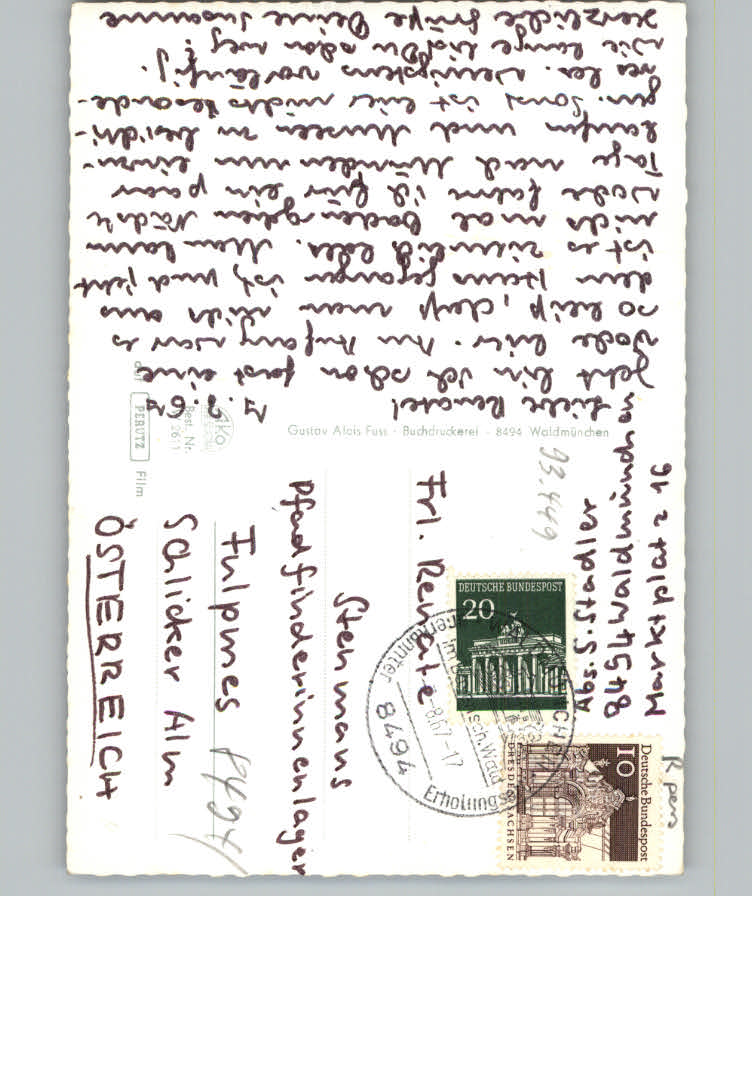 Liebe Renate! 7.8.67
Jetzt bin ich schon fast eine
Woche hier. Am Anfang war es
so heiß, daß man nicht aus
dem Haus gegangen ist und jetzt
ist es ziemlich kalt. Man kann
nicht mal baden gehen. Nächste
Woche fahr ich für ein paar
Tage nach München um einzu-
kaufen und Museen zu besichti-
gen. Sonst ist hier nichts besonde-
res los. Wenigstens vorläufig.
Wie lange bist Du schon weg?
Herzliche Grüße Deine Susanne
Gustav Alois Fuss · Buchdruckerei - 8494 Waldmünchen
Best. Nr.
2611
auf
PERUTZ
Film
93.449
Abs. S. Stadler
8494 Waldmünchen
Marktplatz 16
Frl. Renate
Stenmans
Pfadfinderinnenlager
Fulpmes
Schlicker Alm
ÖSTERREICH
8494
DEUTSCHE BUNDESPOST
20
Deutsche Bundespost
10
DRESDEN SACHSEN
8494
8.67-17
anerkannter
Erholungs